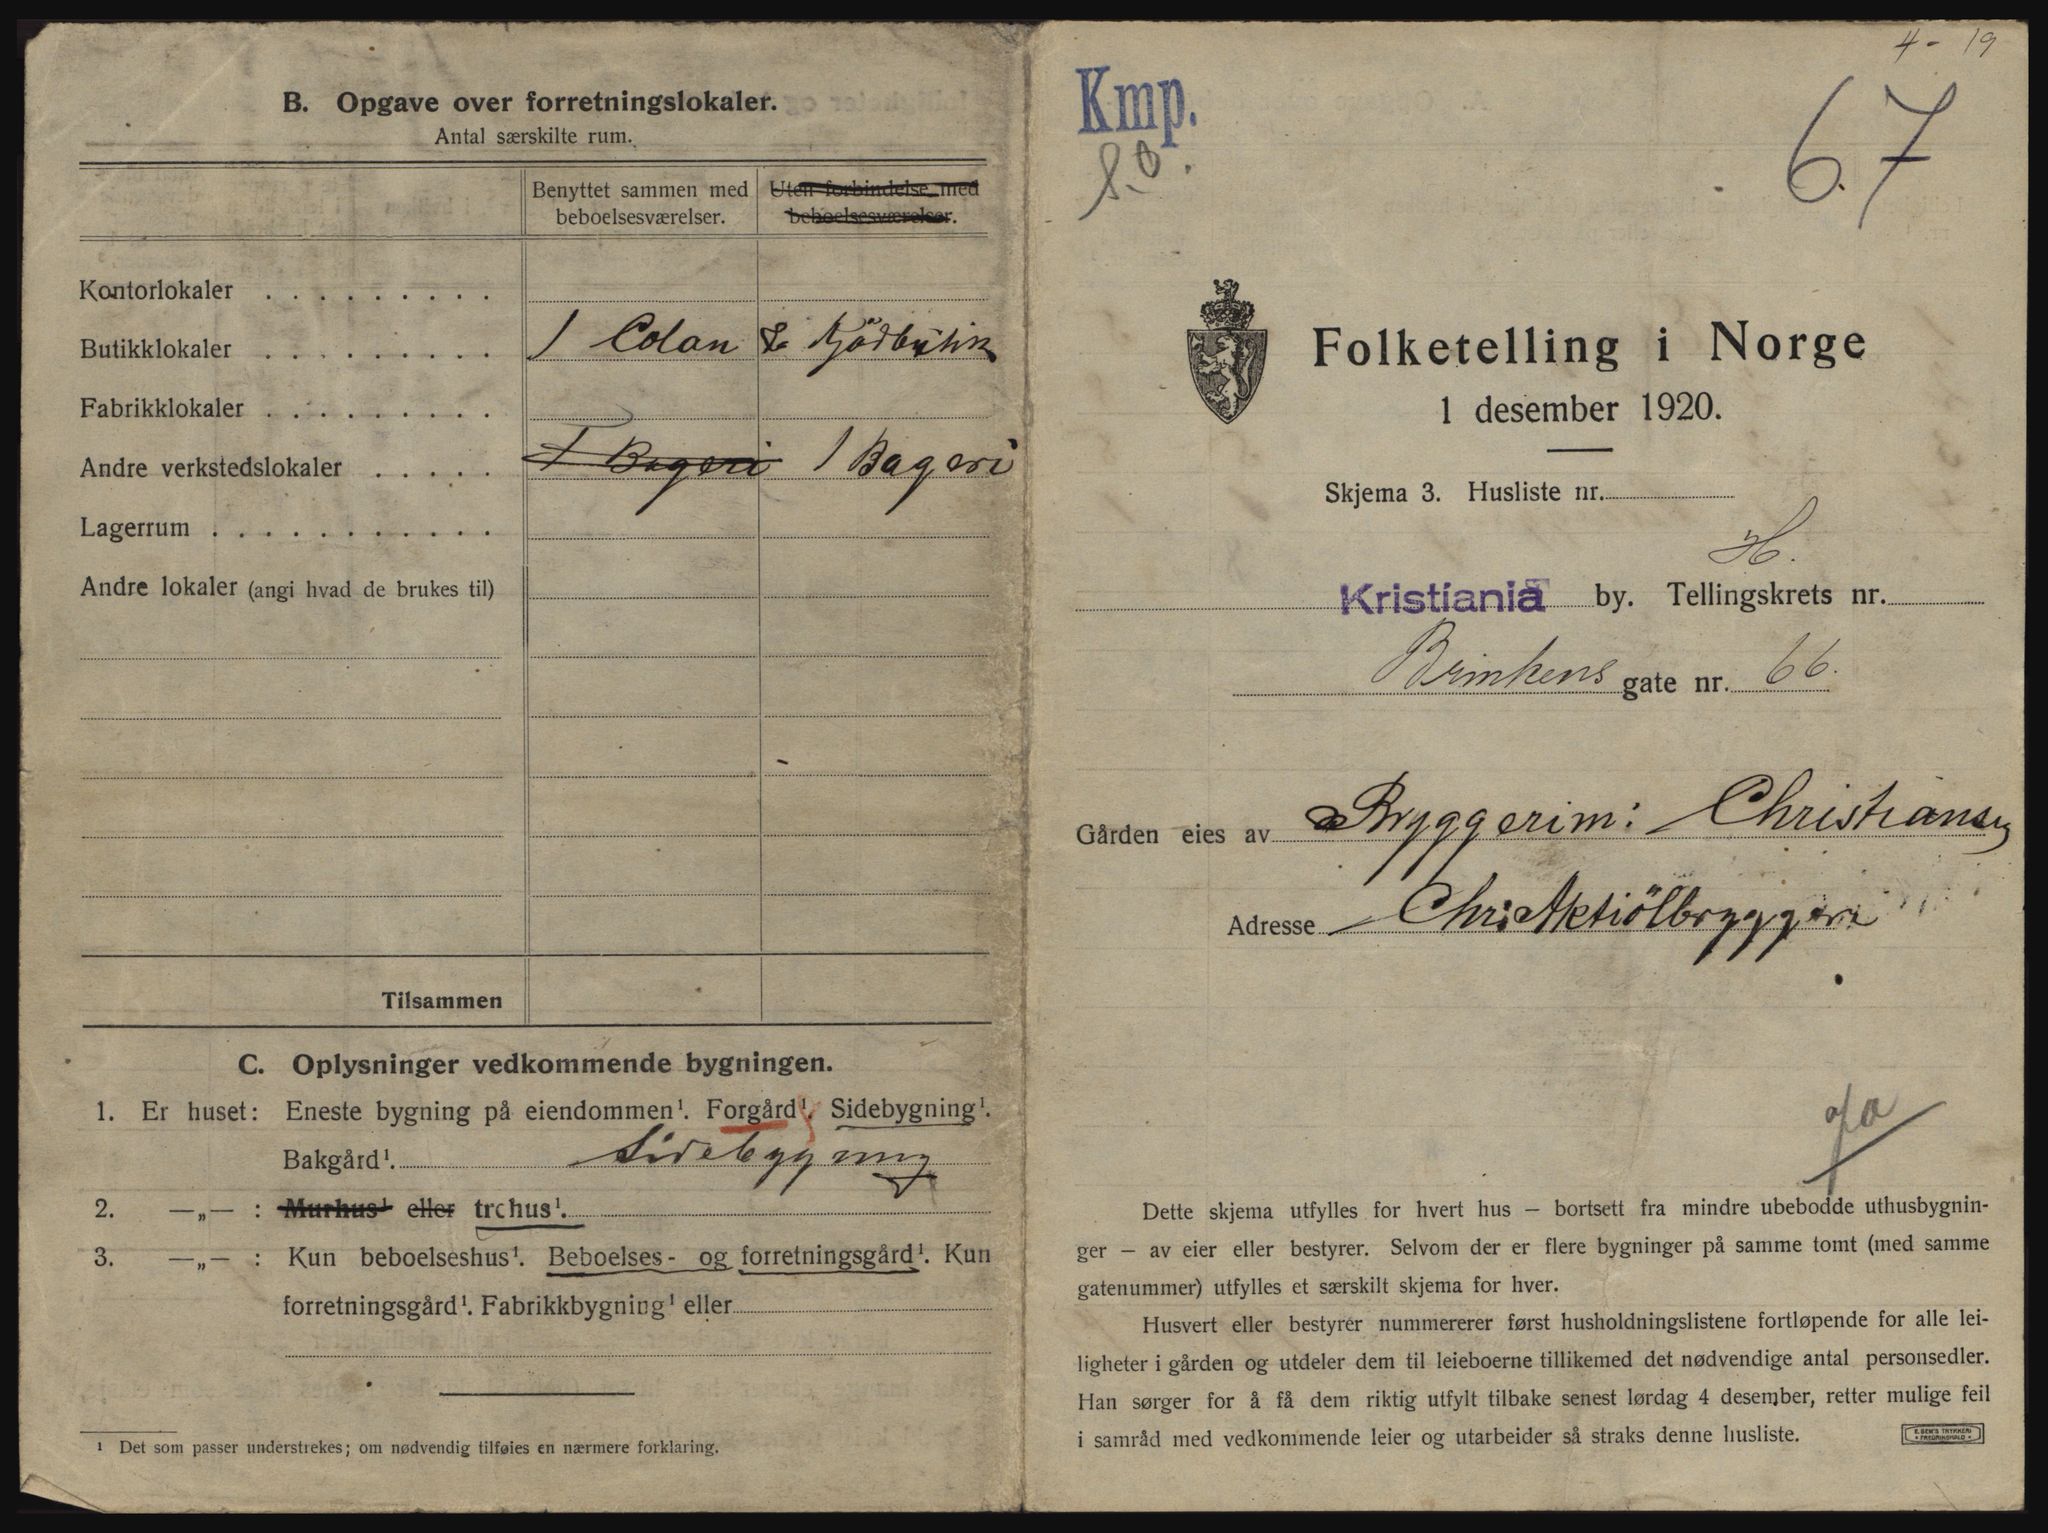 B. Opgave over forretningslokaler.
Antal særskilte rum.
Benyttet sammen med beboelsesværelser.
Uten forbindelse med beboelsesværelser.
Kontorlokaler
Butikklokaler 1 Colan & Kjödbutik
Fabrikklokaler
Andre verkstedslokaler 1 Bageri 1 Bageri
Lagerrum
Andre lokaler (angi hvad de brukes til)
Tilsammen
C. Oplysninger vedkommende bygningen.
1. Er huset: Eneste bygning på eiendommen¹. Forgård¹. Sidebygning¹.
Bakgård¹. Sidebygning
2. —„— : Murhus¹ eller trehus¹.
3. —„— : Kun beboelseshus¹. Beboelses- og forretningsgård¹. Kun
forretningsgård¹. Fabrikkbygning¹ eller
¹ Det som passer understrekes; om nødvendig tilføies en nærmere forklaring.
4 - 19
Kmp.
67
Folketelling i Norge
1 desember 1920.
Skjema 3. Husliste nr.
H.
Kristiania by. Tellingskrets nr.
Brinkens gate nr. 66.
Gården eies av Bryggerim: Christiansen
Adresse Chr: Aktiölbryggeri
Dette skjema utfylles for hvert hus — bortsett fra mindre ubebodde uthusbygnin-
ger — av eier eller bestyrer. Selvom der er flere bygninger på samme tomt (med samme
gatenummer) utfylles et særskilt skjema for hver.
Husvert eller bestyrer nummererer først husholdningslistene fortløpende for alle lei-
ligheter i gården og utdeler dem til leieboerne tillikemed det nødvendige antal personsedler.
Han sørger for å få dem riktig utfylt tilbake senest lørdag 4 desember, retter mulige feil
i samråd med vedkommende leier og utarbeider så straks denne husliste.
E. SEM'S TRYKKERI
FREDRIKSHALD